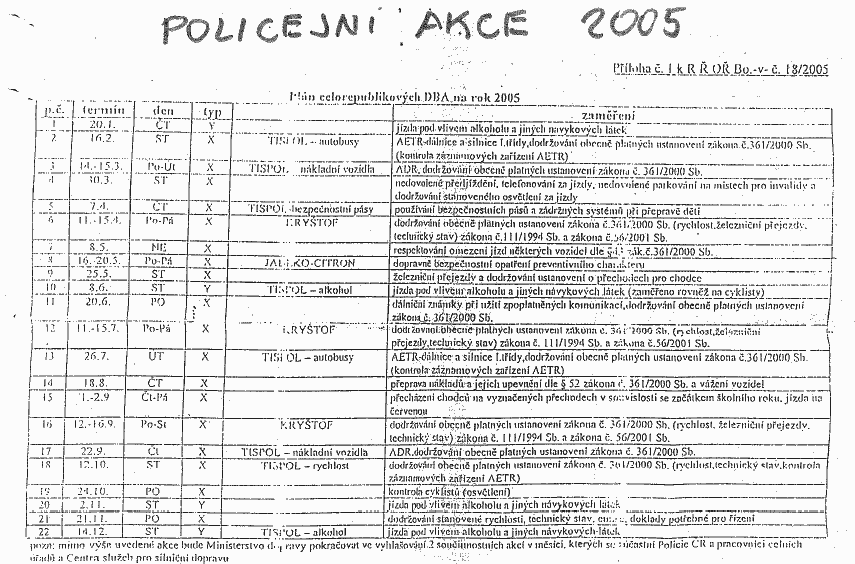 POLICEJNÍ AKCE 2005
Příloha č. 1 k R Ř OŘ Bo.-v- č. 18/2005
Plán celorepublikových DBA na rok 2005
p.č. termín den typ zaměření
1 20.1. ČT Y jízda pod vlivem alkoholu a jiných návykových látek
2 16.2. ST X TISPOL – autobusy AETR-dálnice a silnice I.třídy,dodržování obecně platných ustanovení zákona č.361/2000 Sb.
(kontrola záznamových zařízení AETR)
3 14.-15.3. Po-Út X TISPOL – nákladní vozidla ADR, dodržování obecně platných ustanovení zákona č. 361/2000 Sb.
4 30.3. ST X nedovolené předjíždění, telefonování za jízdy, nedovolené parkování na místech pro invalidy a
dodržování stanoveného osvětlení za jízdy
5 7.4. ČT X TISPOL-bezpečnostní pásy používání bezpečnostních pásů a zádržných systémů při přepravě dětí
6 11.-15.4. Po-Pá X KRYŠTOF dodržování obecně platných ustanovení zákona č.361/2000 Sb. (rychlost,železniční přejezdy,
technický stav) zákona č.111/1994 Sb. a zákona č.56/2001 Sb.
7 8.5. NE X respektování omezení jízd některých vozidel dle zák.č.361/2000 Sb.
8 16.-20.5. Po-Pá X JABLKO-CITRON dopravně bezpečnostní opatření preventivního charakteru
9 25.5. ST X železniční přejezdy a dodržování ustanovení o přechodech pro chodce
10 8.6. ST Y TISPOL – alkohol jízda pod vlivem alkoholu a jiných návykových látek (zaměřeno rovněž na cyklisty)
11 20.6. PO X dálniční známky při užití zpoplatněných komunikací,dodržování obecně platných ustanovení
zákona č. 361/2000 Sb.
12 11.-15.7. Po-Pá X KRYŠTOF dodržování obecně platných ustanovení zákona č. 361/2000 Sb. (rychlost,železniční
přejezdy,technický stav) zákona č. 111/1994 Sb. a zákona č.56/2001 Sb.
13 26.7. ÚT X TISPOL – autobusy AETR-dálnice a silnice I.třídy,dodržování obecně platných ustanovení zákona č.361/2000 Sb.
(kontrola záznamových zařízení AETR)
14 18.8. ČT X přeprava nákladů a jejich upevnění dle § 52 zákona č. 361/2000 Sb. a vážení vozidel
15 1.-2.9 Čt-Pá X přecházení chodců na vyznačených přechodech v souvislosti se začátkem školního roku, jízda na
červenou
16 12.-16.9. Po-St X KRYŠTOF dodržování obecně platných ustanovení zákona č. 361/2000 Sb. (rychlost, železniční přejezdy,
technický stav) zákona č. 111/1994 Sb. a zákona č. 56/2001 Sb.
17 22.9. Čt X TISPOL – nákladní vozidla ADR,dodržování obecně platných ustanovení zákona č. 361/2000 Sb.
18 12.10. ST X TISPOL – rychlost dodržování obecně platných ustanovení zákona č. 361/2000 Sb. (rychlost,technický stav,kontrola
záznamových zařízení AETR)
19 24.10. PO X kontrola cyklistů (osvětlení)
20 2.11. ST Y jízda pod vlivem alkoholu a jiných návykových látek
21 21.11. PO X dodržování stanovené rychlosti, technický stav, doklady potřebné pro řízení
22 14.12. ST Y TISPOL – alkohol jízda pod vlivem alkoholu a jiných návykových látek
pozn: mimo výše uvedené akce bude Ministerstvo dopravy pokračovat ve vyhlašování 2 součinnostních akcí v měsíci, kterých se účastní Policie ČR a pracovníci celních
úřadů a Centra služeb pro silniční dopravu